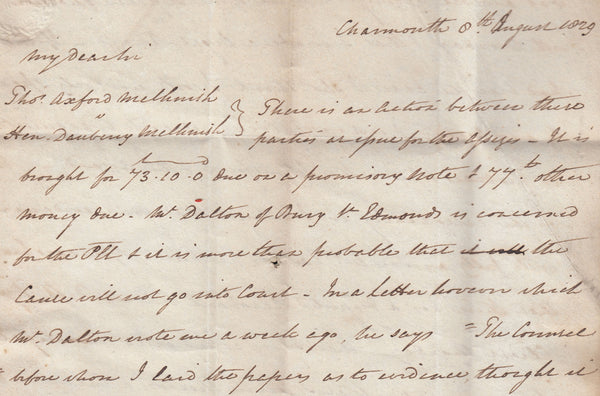 Charmouth 8th August 1829
My Dear Sir
Thos. Axford Melhuish } There is an Action between these
Hen. Daubeny Melhuish } parties at issue for the Assizes - It is
brought for 73.10.0 due on a promissory Note & 77£ other
money due - Mr. Dalton of Bury St Edmonds is concerned
for the Plt & it is more than probable that it will the
Cause will not go into Court - In a Letter however which
Mr. Dalton wrote me a week ago, he says = "The Counsel
before whom I laid the papers as to evidence thought it